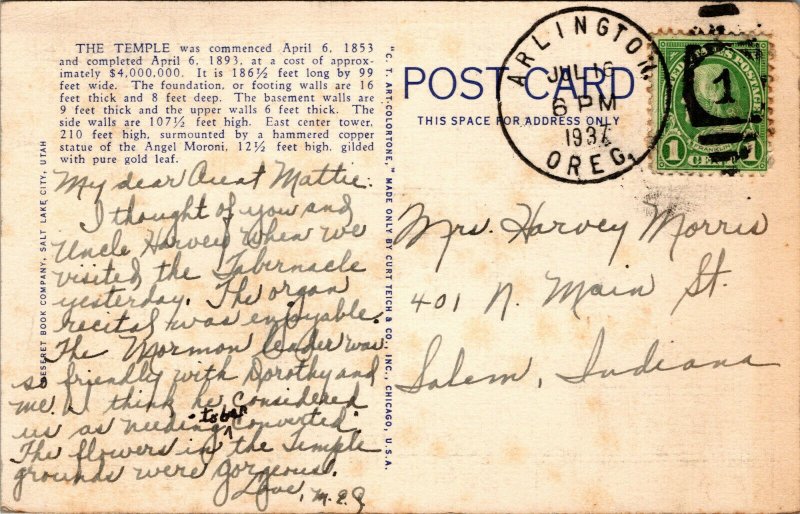 THE TEMPLE was commenced April 6, 1853
and completed April 6, 1893, at a cost of approx-
imately $4,000,000. It is 186½ feet long by 99
feet wide. The foundation, or footing walls are 16
feet thick and 8 feet deep. The basement walls are
9 feet thick and the upper walls 6 feet thick. The
side walls are 107½ feet high. East center tower,
210 feet high, surmounted by a hammered copper
statue of the Angel Moroni, 12½ feet high, gilded
with pure gold leaf.
My dear Aunt Mattie:
I thought of you and
Uncle Harvey when we
visited the Tabernacle
yesterday. The organ
recital was enjoyable.
The Mormon leader was
so friendly with Dorothy and
me. I think he considered
us as needing to be converted.
The flowers in the Temple
grounds were gorgeous.
Love, M.E.
DESERET BOOK COMPANY, SALT LAKE CITY, UTAH
"C. T. ART-COLORTONE," MADE ONLY BY CURT TEICH & CO., INC., CHICAGO, U.S.A.
POST CARD
THIS SPACE FOR ADDRESS ONLY
ARLINGTON.
JUL 16
6 PM
1937
OREG.
1
FRANKLIN
1 CENT 1
Mrs. Harvey Morris
401 N. Main St.
Salem, Indiana